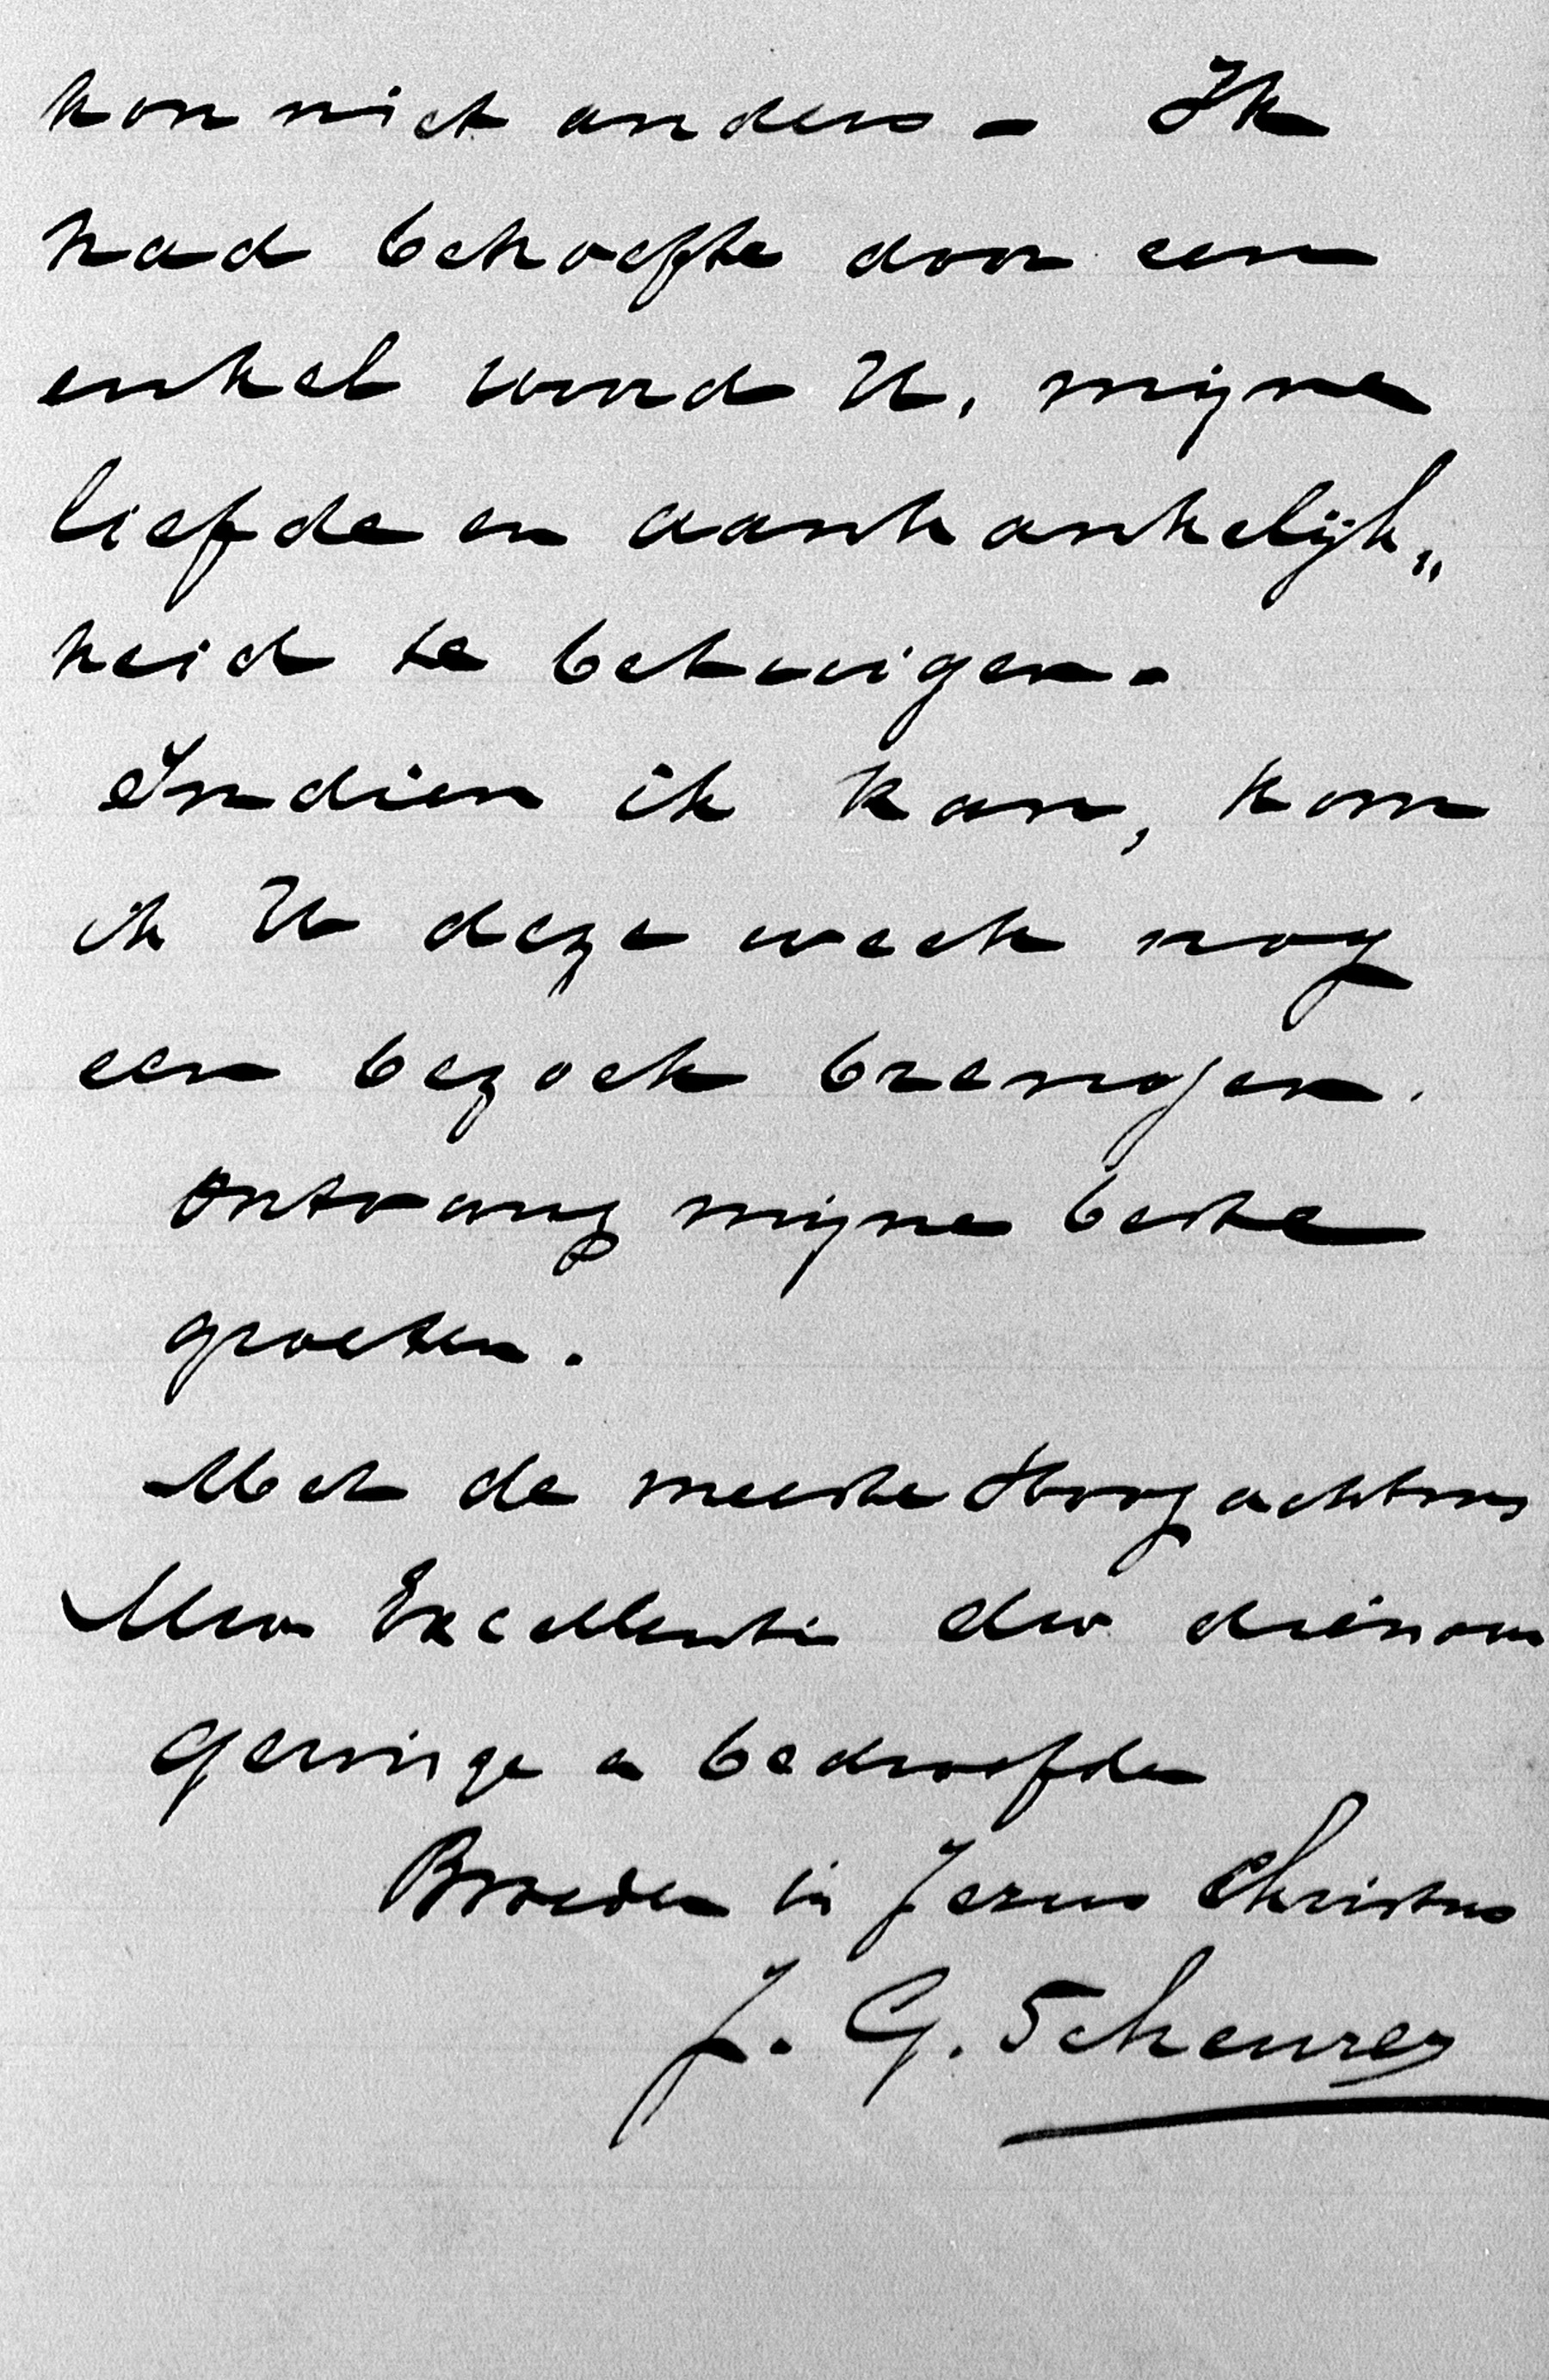 kon niet anders - Ik
had behoefte door een
enkel woord U, mijne
liefde en aanhankelijk„
heid te betuigen.
Indien ik kan, kom
ik U deze week nog
een bezoek brengen.
Ontvang mijne beste
groeten.
Met de meeste Hoogachting
Uwe Excellentie dw dienaar
geringe en bedroefde
Broeder in Jezus Christus
J. G. Scheurer